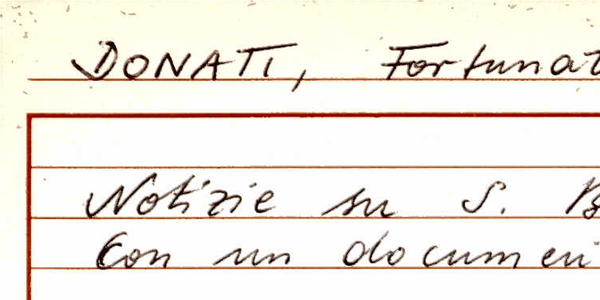 DONATI, Fortunat
Notizie su S. B
Con un documen